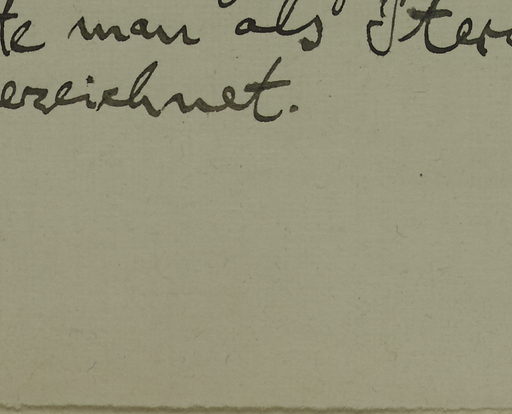 te man als Ster
erzeichnet.